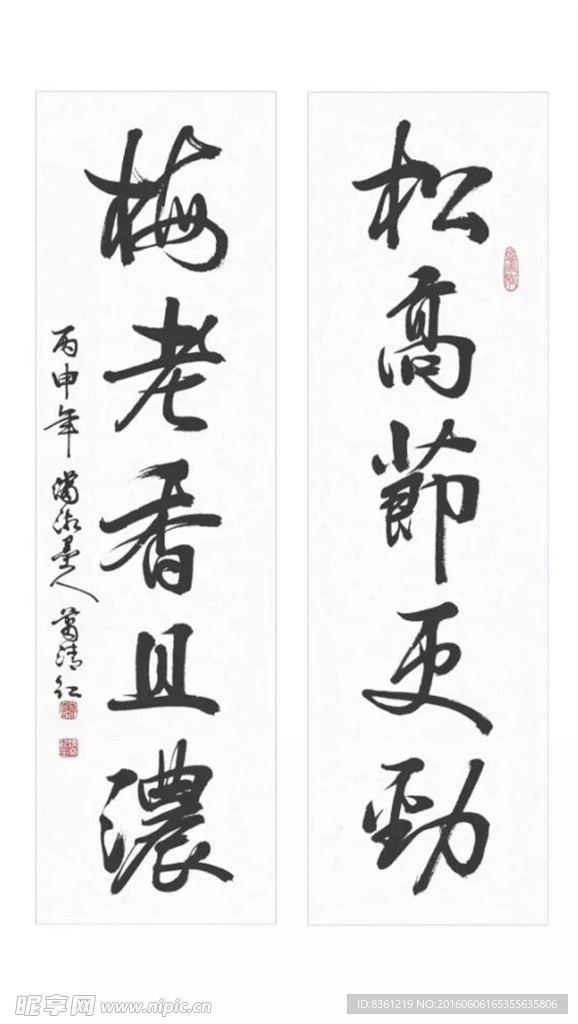 松高節更勁
梅老香且濃
丙申年
昵享网 www.nipic.cn
ID:8361219 NO:20160606165355635806